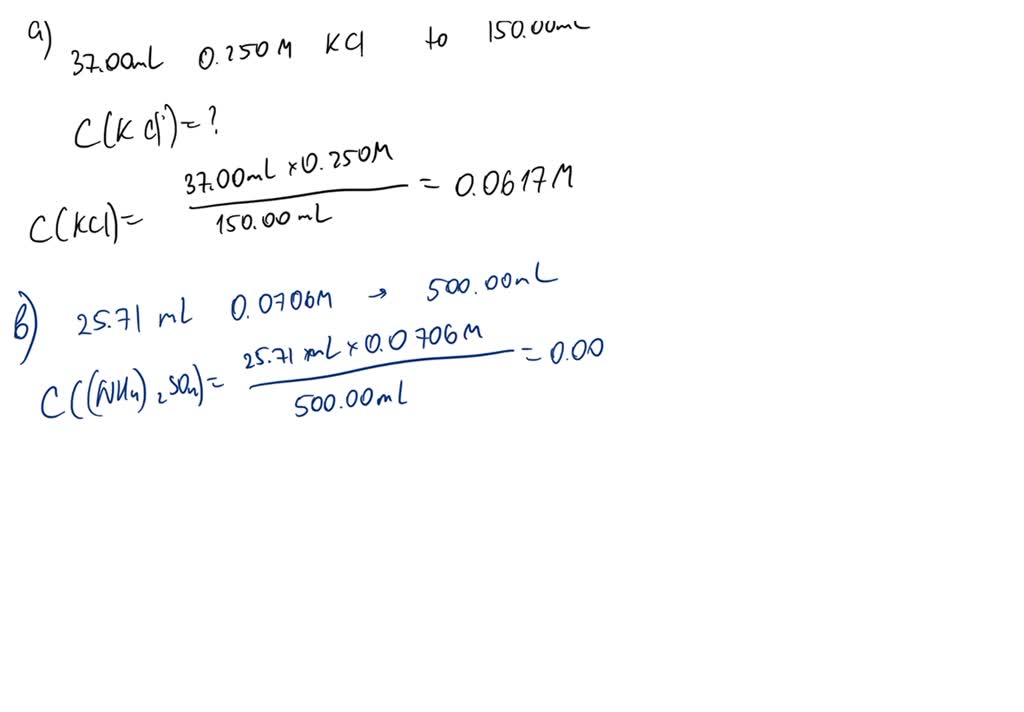 a)
37.00mL 0.250M KCl to 150.00mL
C(KCl)=?
C(KCl)= 37.00mL × 0.250M / 150.00mL = 0.0617M
b) 25.71 mL 0.0706M → 500.00mL
C((NH4)2SO4)= 25.71 mL × 0.0706M / 500.00mL = 0.00